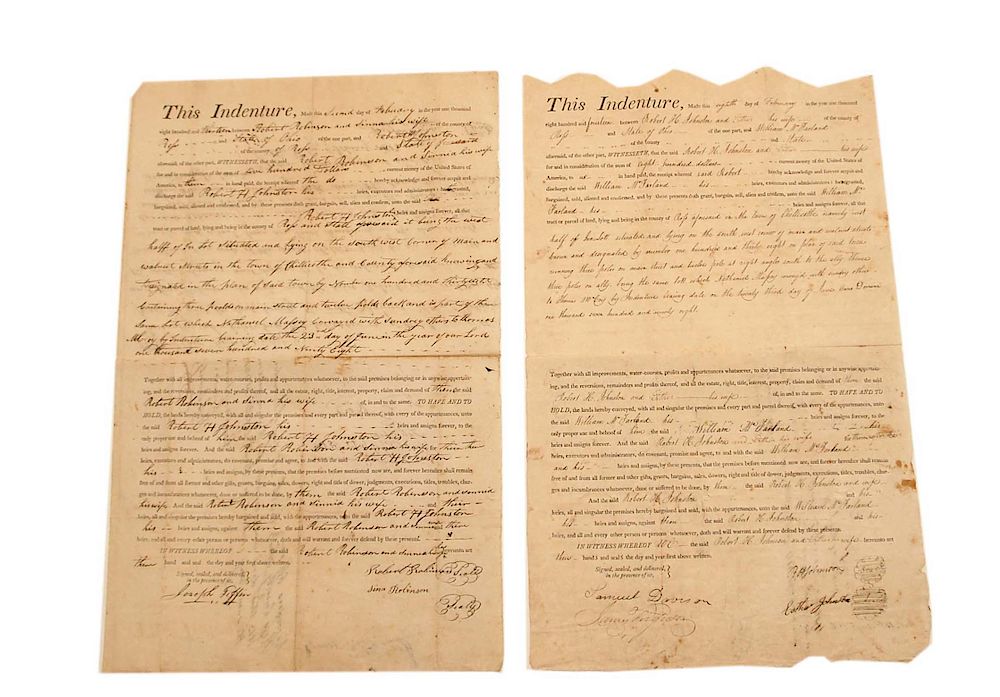 This Indenture, Made this Second day of February in the year one thousand
eight hundred and between Robert Robinson and Sinna his wife of the county of
Ross and State of Ohio of the one part, and Robert H Johnston
of the county of Ross and State of
aforesaid of the other part, WITNESSETH, that the said Robert Robinson and Sinnia his wife
for and in consideration of the sum of five hundred Dollars current money of the United States of
America, to them in hand paid, the receipt whereof the do hereby acknowledge and forever acquit and
discharge the said Robert H Johnston his heirs, executors and administrators; have granted,
bargained, sold, aliened and confirmed, and by these presents doth grant, bargain, sell, alien and confirm, unto the said
Robert H Johnston heirs and assigns forever, all that
tract or parcel of land, lying and being in the county of Ross and State aforesaid it being the west
half of In lot Situated and lying on the south west corner of main and
walnut streets in the town of Chillicothe and County aforesaid knowing and
designated in the plan of said town by Number one hundred and thirty eight
Containing three poolds on main street and twelve poolds back and is part of the
Same Lot which Nathaniel Massey Conveyed with Sundrey others to thomas
Mc oy by Indenture bearing date the 23 day of June in the year of our Lord
one thousand seven hundred and Ninty Eight
Together with all improvements, water-courses, profits and appurtenances whatsoever, to the said premises belonging or in anywise appertain-
ing, and the reversions, remainders and profits thereof, and all the estate, right, title, interest, property, claim and demand of them the said
Robert Robinson and Sinna his wife of, in and to the same. TO HAVE AND TO
HOLD, the lands hereby conveyed, with all and singular the premises and every part and parcel thereof, with every of the appurtenances, unto
the said Robert H Johnston his heirs and assigns forever, to the
only proper use and behoof of him Robert H Johnston his
heirs and assigns forever. And the said Robert Robinson and Sinna his wife
heirs, executors and administrators, do covenant, promise and agree, to and with the said Robert H Johnston
his heirs and assigns, by these presents, that the premises before mentioned now are, and forever hereafter shall remain
free of and from all former and other gifts, grants, bargains, sales, dowers, right and title of dower, judgments, executions, titles, troubles, char-
ges and incumbrances whatsoever, done or suffered to be done, by them the said Robert Robinson and Sinnia
his wife And the said Robert Robinson and Sinnia his wife and their
heirs, all and singular the premises hereby bargained and sold, with the appurtenances, unto the said Robert H Johnston
his heirs and assigns, against them the said Robert Robinson and
heirs, and all and every other person or persons whatsoever, doth and will warrant and forever defend by these presents.
IN WITNESS WHEREOF the said Robert Robinson and Sinna hereunto set
their hand and seal the day and year first above written.
Signed, sealed, and delivered,
in the presence of us,
Robert Robinson Seal
Joseph Tiffin
Sina Robinson
Seal
This Indenture, Made this eighth day of February in the year one thousand
eight hundred and fourteen between Robert H. Johnston and Esther his wife of the county of
Ross and State of Ohio of the one part, and William McFarland
of the county State
aforesaid, of the other part, WITNESSETH, that the said Robert H. Johnston and his wife
for and in consideration of the sum of eight hundred dollars current money of the United States of
America, to in hand paid, the receipt whereof said Robert hereby acknowledge and forever acquit and
discharge the said William McFarland his heirs, executors and administrators; bargained,
bargained, sold, aliened and confirmed, and by these presents doth grant, bargain, sell, alien and confirm, unto the said William Mc
Farland his heirs and assigns forever, all that
tract or parcel of land, lying and being in the county of Ross aforesaid in the town of Chillicothe namely west
half of Inlott situated and lying on the south west corner of main and walnut streets
known and designated by number one hundred and thirty eight on plan of said town
running three poles on main street and twelve pole at right angles south to the alley thence
three poles on ally. being the same lott which Nathaniel Massey conveyed with sundry other
to Thomas McCoy by Indenture bearing date on the twenty third day of June Anno Domini
one thousand seven hundred and ninety eight.
Together with all improvements, water-courses, profits and appurtenances whatsoever, to the said premises belonging or in anywise appertain-
ing, and the reversions, remainders and profits thereof, and all the estate, right, title, interest, property, claim and demand of them the said
Robert H. Johnston and Esther his wife of, in and to the same. TO HAVE AND TO
HOLD, the lands hereby conveyed, with all and singular the premises and every part and parcel thereof, with every of the appurtenances, unto
the said William McFarland his heirs and assigns forever, to the
only proper use and behoof of him the said William McFarland his
heirs and assigns forever. And the said Robert H. Johnston and his wife
heirs, executors and administrators, do covenant, promise and agree, to and with the said William McFarland
and his heirs and assigns, by these presents, that the premises before mentioned now are, and forever hereafter shall remain
free of and from all former and other gifts, grants, bargains, sales, dowers, right and title of dower, judgments, executions, titles, troubles, char-
ges and incumbrances whatsoever, done or suffered to be done, by them the said Robert H. Johnston and wife
And the said Robert H. Johnston and his
heirs, all and singular the premises hereby bargained and sold, with the appurtenances, unto the said William McFarland
his heirs and assigns, against them the said Robert H. Johnston and his
heirs, and all and every other person or persons whatsoever, doth and will warrant and forever defend by these presents.
IN WITNESS WHEREOF the said Robert H. Johnson and Esther his wife hereunto set
their hand s and seal s the day and year first above written.
Signed, sealed, and delivered,
in the presence of us,
R H Johnston
Samuel Davison
Esther Johnston